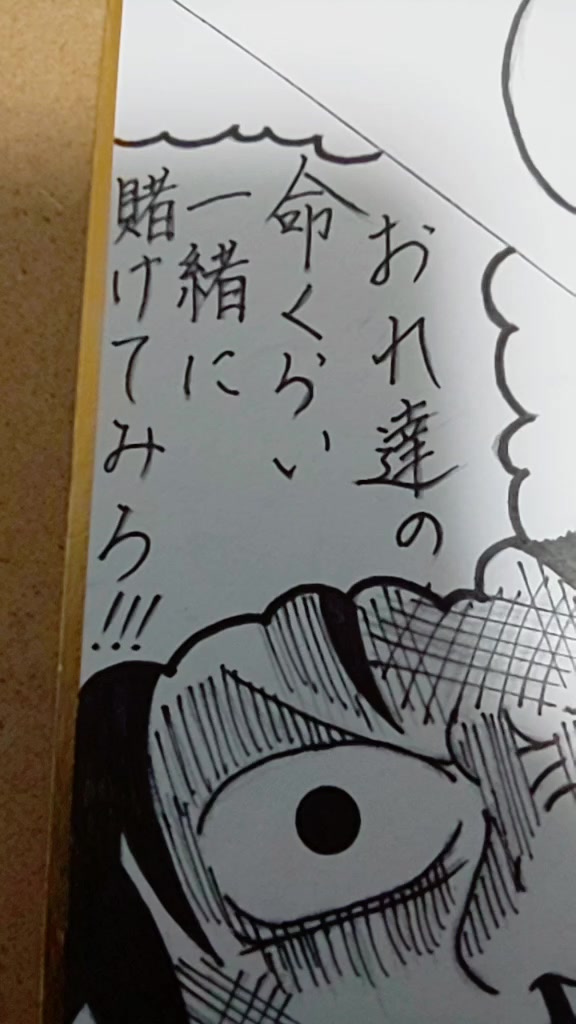 おれ達の
命くらい
一緒に
賭けてみろ!!!